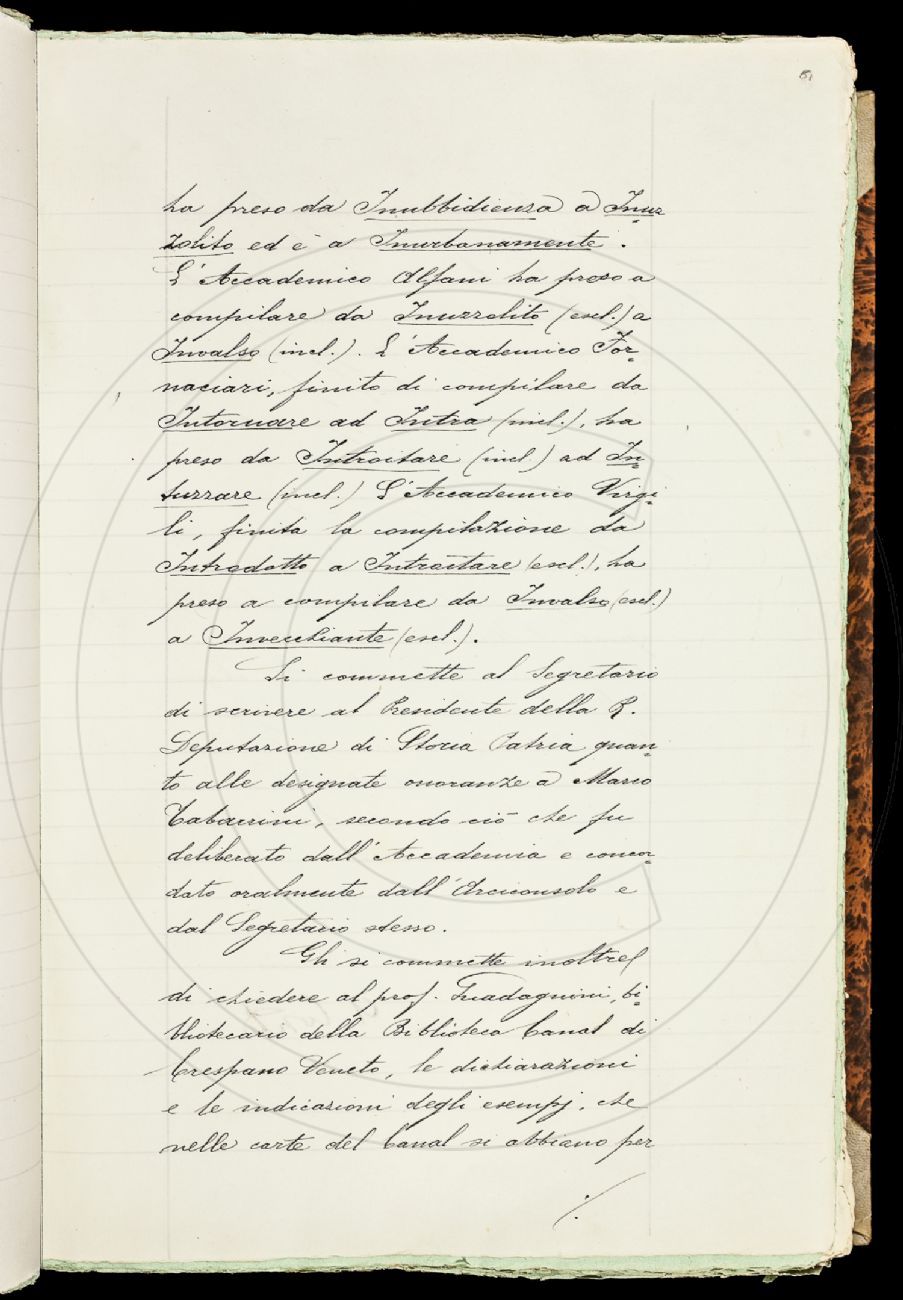 51
ha preso da Inubbidienza a Inuz=
zolito ed è a Inurbanamente.
L'Accademico Alfani ha preso a
compilare da Inuzzolito (escl.) a
Invalso (incl.). L'Accademico For=
naciari, finito di compilare da
Intornare ad Intra (incl.), ha
preso da Introitare (incl) ad In=
tuzzare (incl.) L'Accademico Virgi=
li, finita la compilazione da
Introdotto a Introitare (escl.), ha
preso a compilare da Invalso (escl.)
a Invecchiante (escl.).
Si commette al Segretario
di scrivere al Presidente della R.
Deputazione di Storia Patria quan=
to alle designate onoranze a Marco
Tabarrini, secondo ciò che fu
deliberato dall'Accademia e concor=
dato oralmente dall'Arciconsolo e
dal Segretario stesso.
Gli si commette inoltre
di chiedere al prof. Guadagnini, bi=
bliotecario della Biblioteca Canal di
Crespano Veneto, le dichiarazioni
e le indicazioni degli esempj, che
nelle carte del Canal si abbiano per
./.